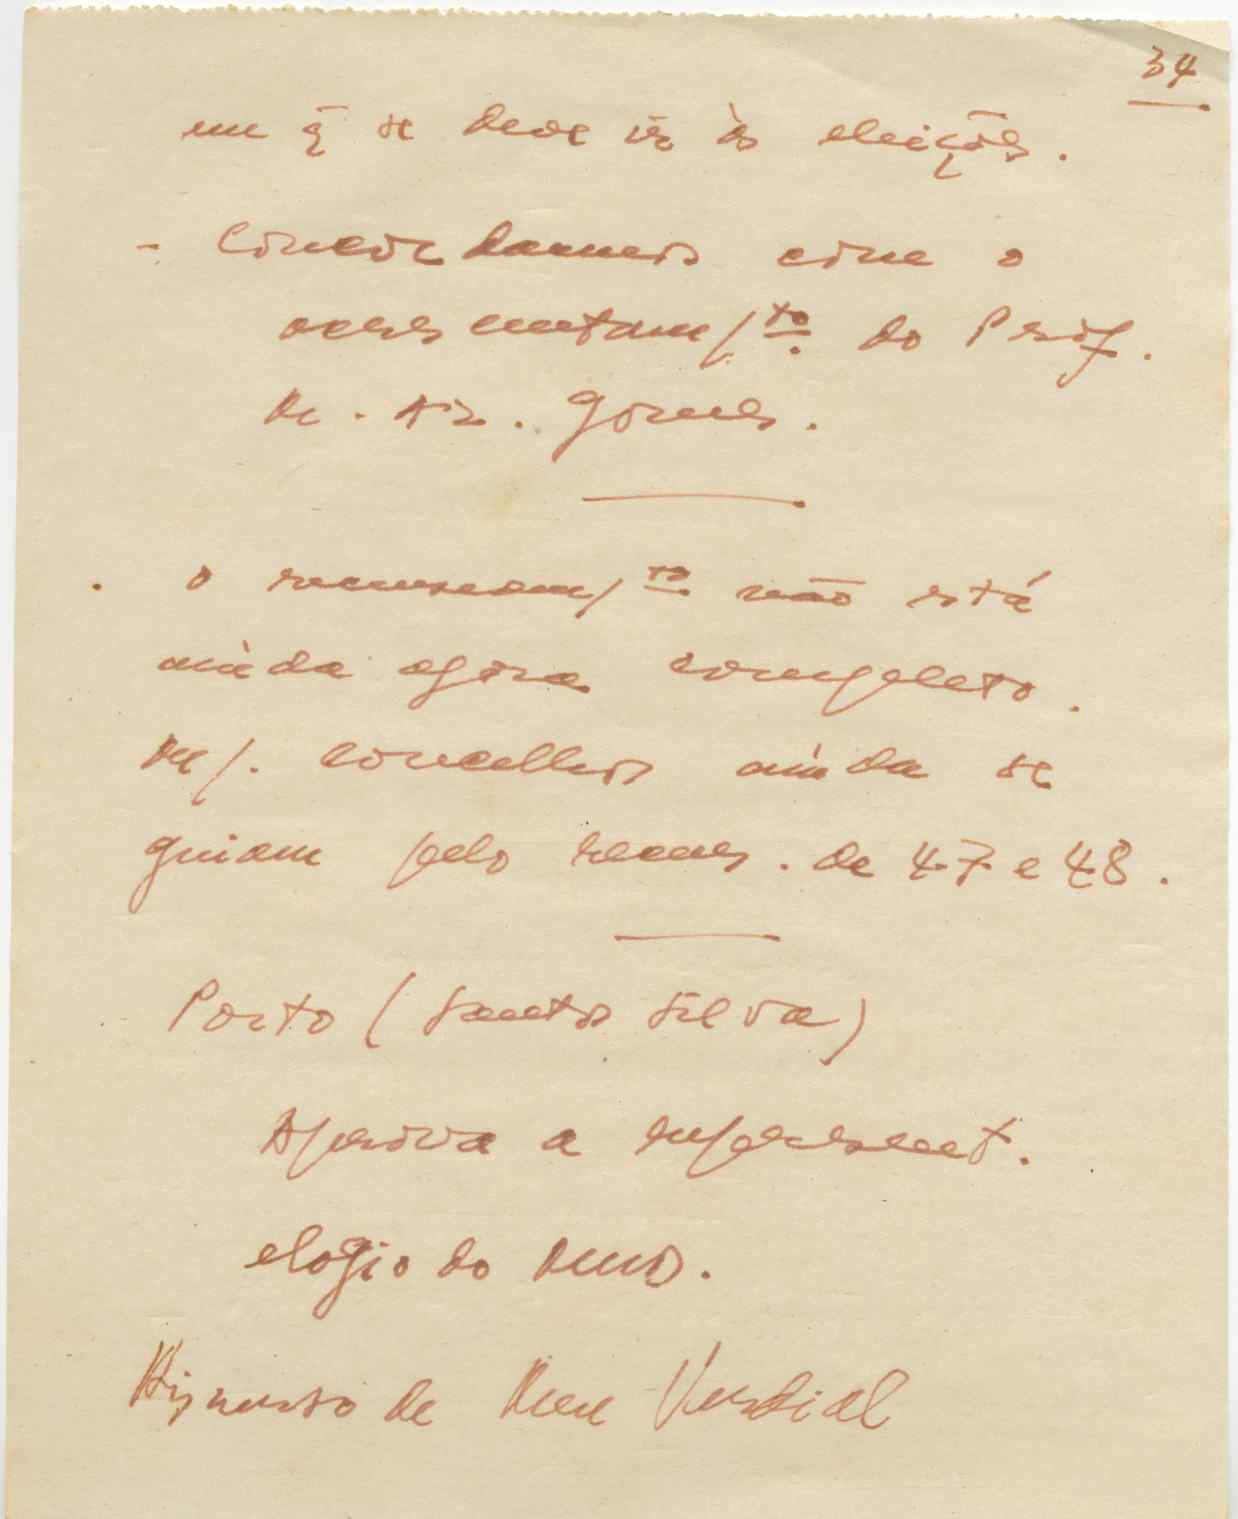 34
em q̃ se deve ir às eleições.
- Concordamos com o
acrescentam/to do Prof.
Az. Gomes.
. o recenseam/to não está
ainda agora completo.
concelhos ainda se
guiam pelo recens. de 47 e 48.
Porto (Santos Silva)
Aprova a represent.
elogio do MUD.
Discurso de Mem Verdial